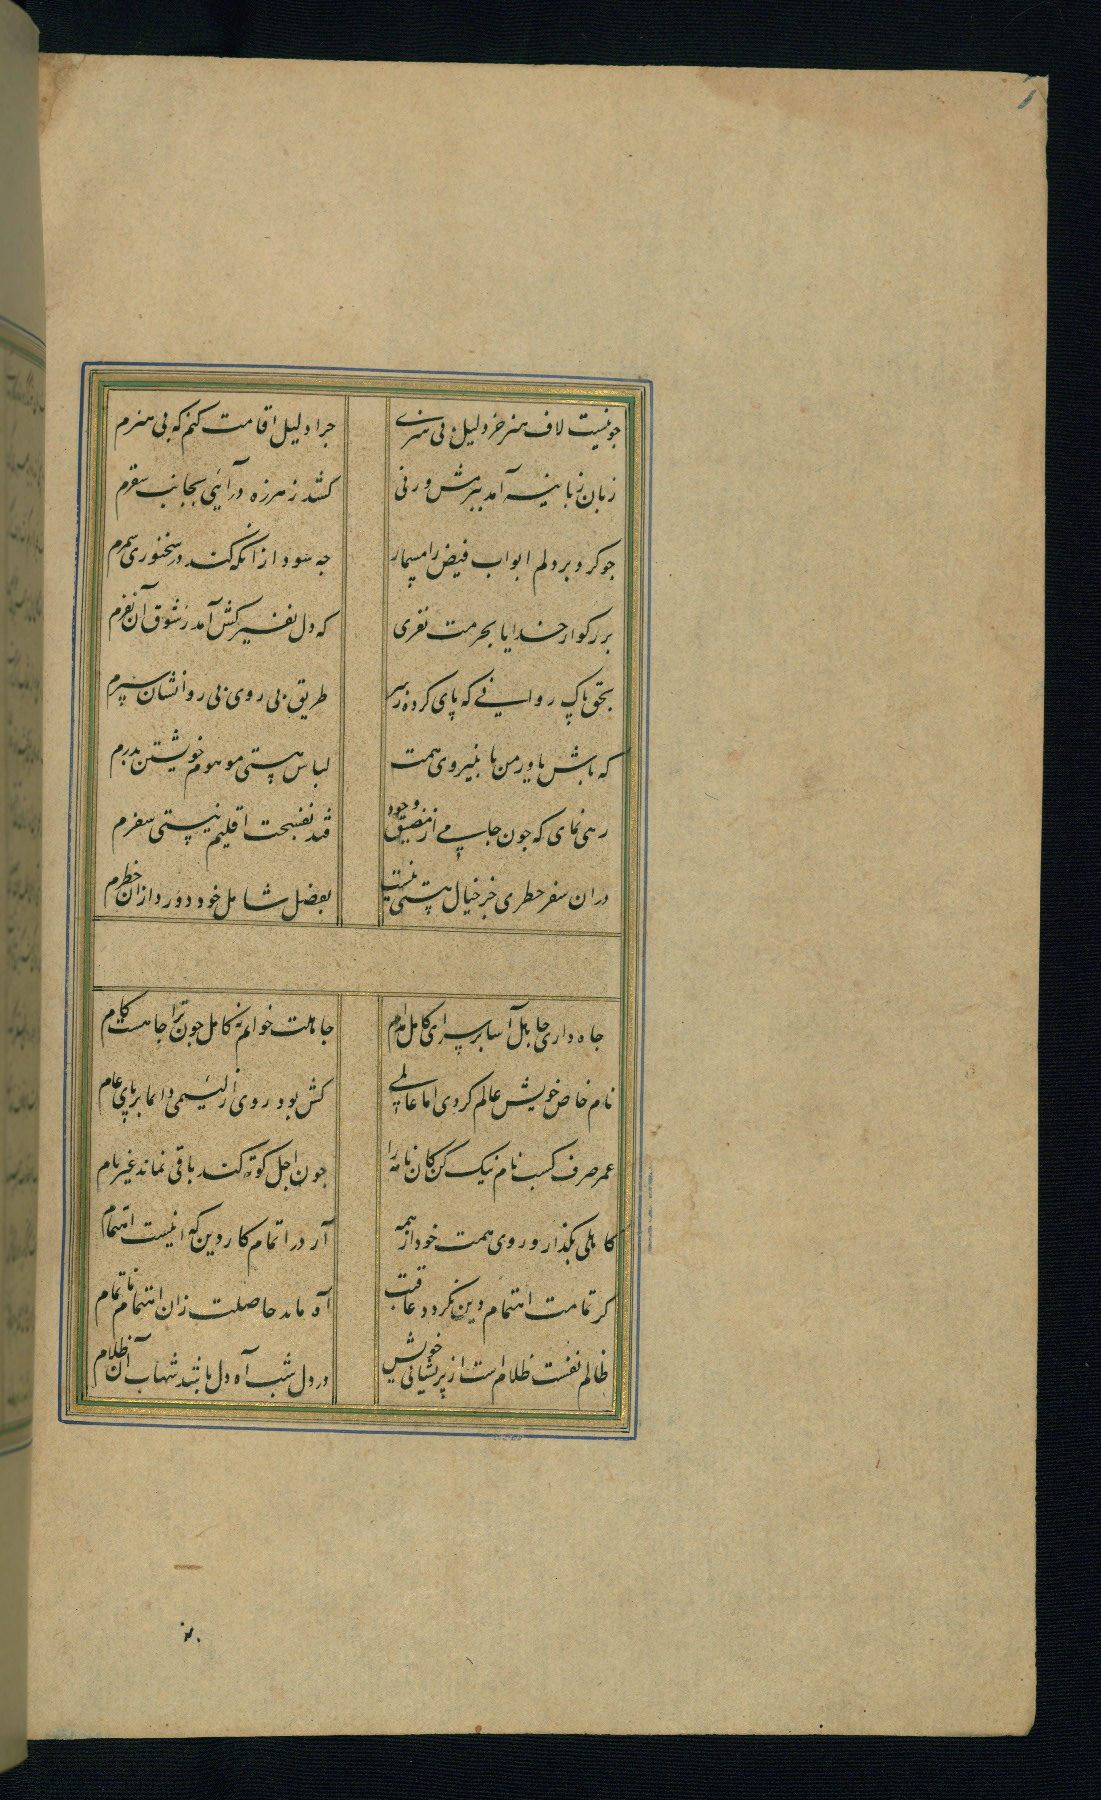 جو نیست لاف هنر جز دلیل بی هنری
جرا دلیل اقامت کنم که بی هنرم
زبان زبانیه آمد ببر مش ورنی
کشد ز هرزه درآئی بجانب سقرم
جو کرد بر دلم ابواب فیض را مسمار
جه سود از آنکه کند در سخنوری سمرم
بزرکوار خدایا بحرمت نفری
که دل نفیر کش آمد ز شوق آن نفرم
بحق پاک روانی که پای کرده ز سر
طریق بی روی بی روانشان سپرم
که باش یاور من تا بنیروی همت
لباس هستی موهوم خویشتن بدرم
رهی نمای که جون جامی از مضیق وجود
فتد بفسحت اقلیم نیستی سفرم
در ان سفر خطری جز خیال هستی نیست
بفضل شامل خود دور دار ازان خطرم
جاه داری جاهل آسا بر سرای کامل مدام
جاهلت خوانم نه کامل جون ترا جاهست کام
نام خاص خویش عالم کردی اما عالمی
کش بود روی از لئیمی دائما بر پای عام
عمر صرف کسب نام نیک کن کان نامه را
جون اجل کوته کند باقی نماند غیر نام
کاهلی بکذار و روی همت خود از همه
آر در اتمام کار دین که اینست اهتمام
کر تمامت اهتمام دین نکردد عاقبت
آه ماند حاصلت زان اهتمام ناتمام
ظالم نفست ظلام است از پریشانی خویش
در دل شب آه دل باشد شهاب آن ظلام